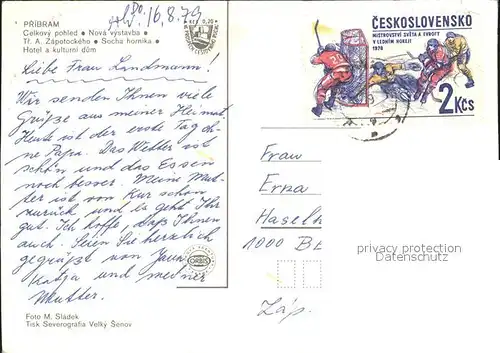 PŘÍBRAM
Celkový pohled • Nová výstavba •
Tř. A. Zápotockého • Socha horníka •
Hotel a kulturní dům
Do, 16.8.79
KčS 0,20
Liebe Frau Landmann!
Wir senden Ihnen viele
Grüße aus meiner Heimat.
Heute ist der erste Tag oh-
ne Papa. Das Wetter ist
schön und das Essen
noch besser. Meine Mut-
ter ist von Kur schon
zurück und es geht Ihr
gut. Ich hoffe, daß Ihnen
auch. Seien Sie herzlich
gegrüßt von Jana
Katja und meiner
Mutter.
ORBIS
Foto M. Sládek
Tisk Severografia Velký Šenov
ČESKOSLOVENSKO
MISTROVSTVÍ SVĚTA A EVROPY
V LEDNÍM HOKEJI
1978
2 Kčs
Frau
Erna
Haseln
1000 BE
privacy protection
Datenschutz
Záp.